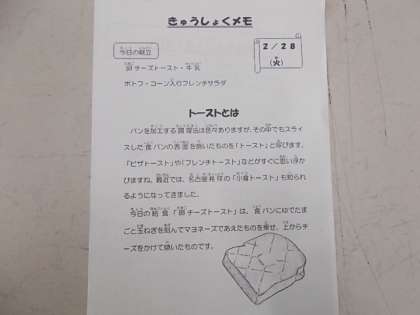 きゅうしょくメモ
今日の献立
2／28
(火)
卵チーズトースト・牛乳
ポトフ・コーン入りフレンチサラダ
トーストとは
パンを加工する調理法は色々ありますが、その中でもスライ
スした食パンの表面を焼いたものを「トースト」と呼びます。
「ピザトースト」や「フレンチトースト」などがすぐに思い浮か
びますね。最近では、名古屋発祥の「小倉トースト」も知られ
るようになってきました。
今日の給食「卵チーズトースト」は、食パンにゆでたま
ごと玉ねぎを刻んでマヨネーズであえたものを乗せ、上からチ
ーズをかけて焼いたものです。